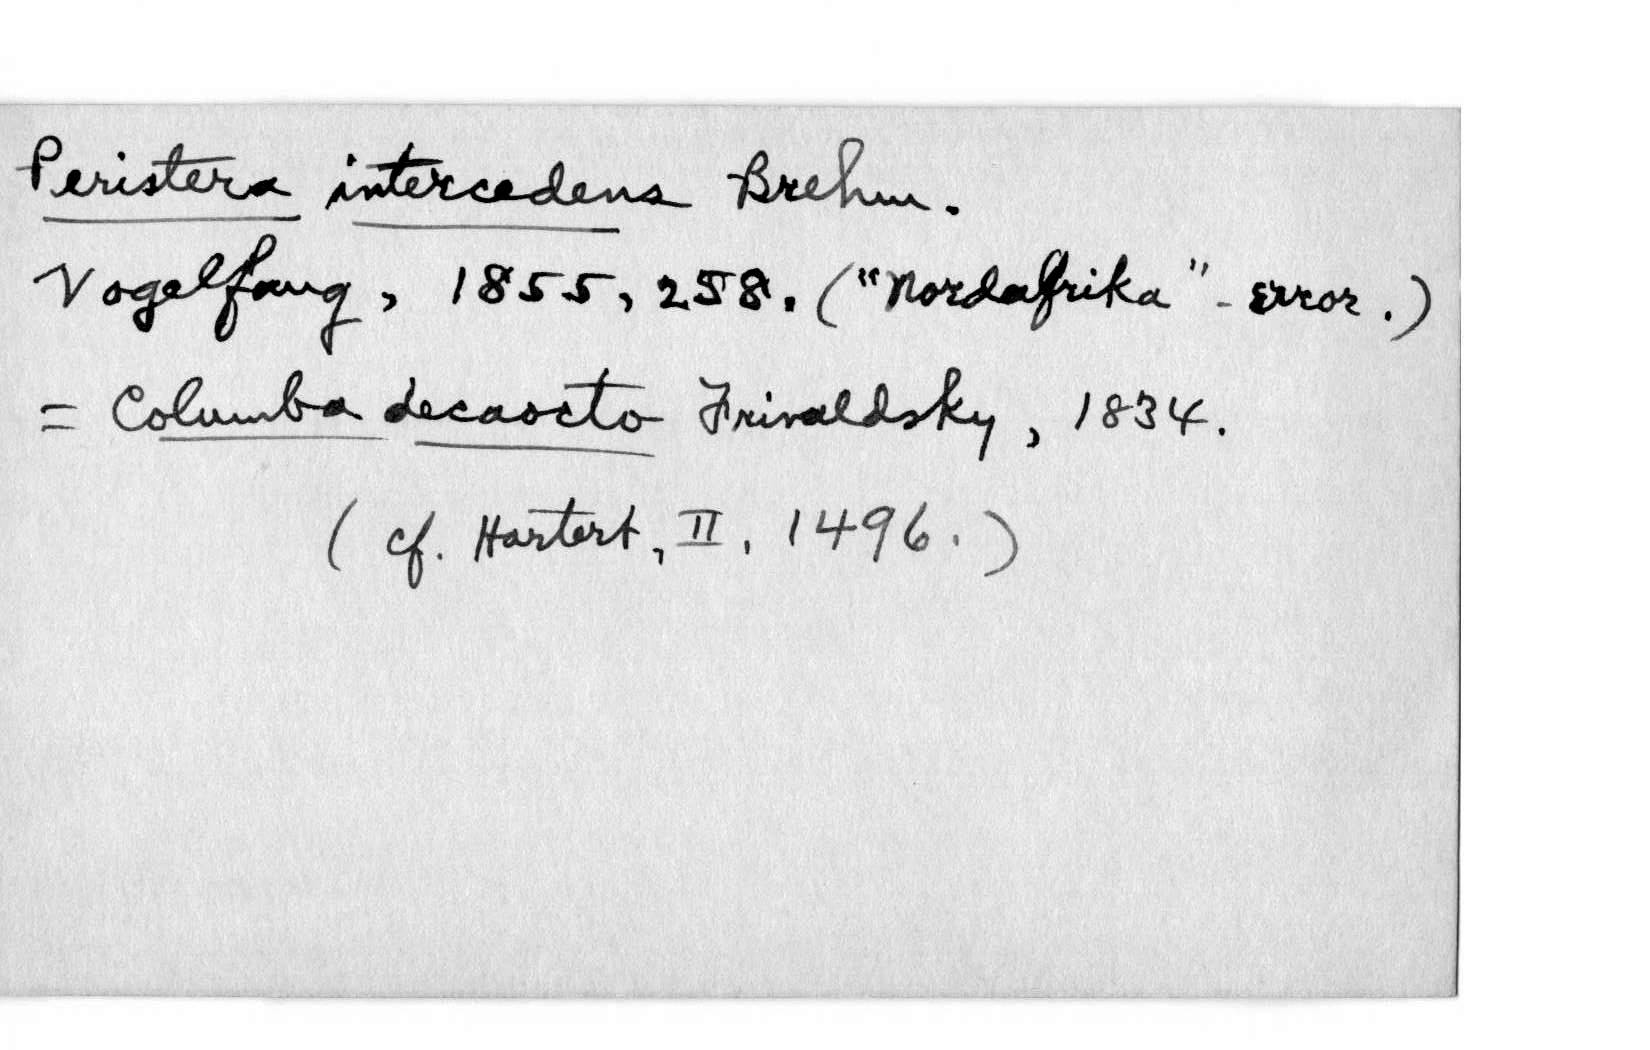 Peristera intercedens Brehm.
Vogelfang, 1855, 258. ("Nordafrika" - error.)
= Columba decaocto Frivaldsky, 1834.
(cf. Hartert, II, 1496.)